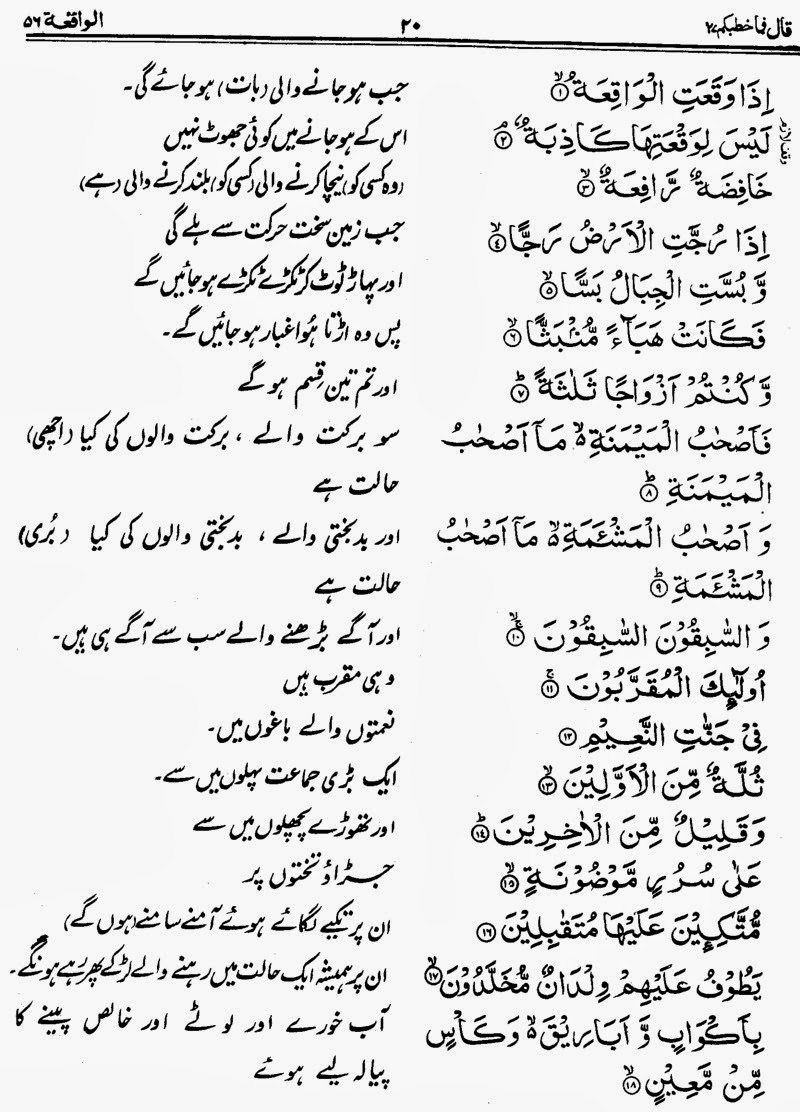 قال فما خطبکم ۲۷ ۲۰ الواقعة ۵۶
اِذَا وَقَعَتِ الْوَاقِعَةُ ۙ﴿۱﴾ جب ہو جانے والی (بات) ہو جائے گی۔
لَيْسَ لِوَقْعَتِهَا كَاذِبَةٌ ۘ﴿۲﴾ اس کے ہو جانے میں کوئی جھوٹ نہیں
وقف لازم
خَافِضَةٌ رَّافِعَةٌ ۙ﴿۳﴾ (وہ کسی کو) نیچا کرنے والی (کسی کو) بلند کرنے والی (ہے)
اِذَا رُجَّتِ الْاَرْضُ رَجًّا ۙ﴿۴﴾ جب زمین سخت حرکت سے ہلے گی
وَّ بُسَّتِ الْجِبَالُ بَسًّا ۙ﴿۵﴾ اور پہاڑ ٹوٹ کر ٹکڑے ٹکڑے ہو جائیں گے
فَكَانَتْ هَبَآءً مُّنْۢبَثًّا ۙ﴿۶﴾ پس وہ اڑتا ہُوا غبار ہو جائیں گے۔
وَّ كُنْتُمْ اَزْوَاجًا ثَلٰثَةً ؕ﴿۷﴾ اور تم تین قِسم ہو گے
فَاَصْحٰبُ الْمَيْمَنَةِ ۙ۬ مَاۤ اَصْحٰبُ سو برکت والے ، برکت والوں کی کیا (اچھی)
الْمَيْمَنَةِ ؕ﴿۸﴾ حالت ہے
وَ اَصْحٰبُ الْمَشْـَٔمَةِ ۙ۬ مَاۤ اَصْحٰبُ اور بدبختی والے ، بدبختی والوں کی کیا (بُری)
الْمَشْـَٔمَةِ ؕ﴿۹﴾ حالت ہے
وَ السّٰبِقُوْنَ السّٰبِقُوْنَ ۚۙ﴿۱۰﴾ اور آگے بڑھنے والے سب سے آگے ہی ہیں۔
اُولٰٓئِكَ الْمُقَرَّبُوْنَ ۚ﴿۱۱﴾ وہی مقرب ہیں
فِيْ جَنّٰتِ النَّعِيْمِ ﴿۱۲﴾ نعمتوں والے باغوں میں۔
ثُلَّةٌ مِّنَ الْاَوَّلِيْنَ ۙ﴿۱۳﴾ ایک بڑی جماعت پہلوں میں سے۔
وَ قَلِيْلٌ مِّنَ الْاٰخِرِيْنَ ؕ﴿۱۴﴾ اور تھوڑے پچھلوں میں سے
عَلٰى سُرُرٍ مَّوْضُوْنَةٍ ۙ﴿۱۵﴾ جڑاؤ تختوں پر
مُّتَّكِـِٕيْنَ عَلَيْهَا مُتَقٰبِلِيْنَ ﴿۱۶﴾ ان پر تکیے لگائے ہوئے آمنے سامنے (ہوں گے)
يَطُوْفُ عَلَيْهِمْ وِلْدَانٌ مُّخَلَّدُوْنَ ۙ﴿۱۷﴾ ان پر ہمیشہ ایک حالت میں رہنے والے لڑکے پھر رہے ہونگے۔
بِاَكْوَابٍ وَّ اَبَارِيْقَ ۙ۬ وَ كَاْسٍ آب خورے اور لوٹے اور خالص پینے کا
مِّنْ مَّعِيْنٍ ۙ﴿۱۸﴾ پیالہ لیے ہوئے